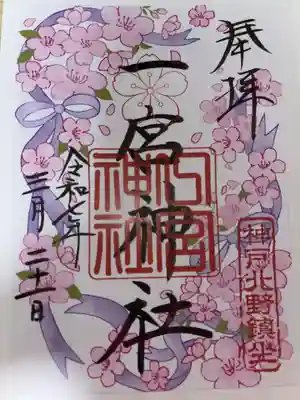 奉拝
神戸北野鎮坐
一宮神社
一宮
神社
令和七年
三月二十一日